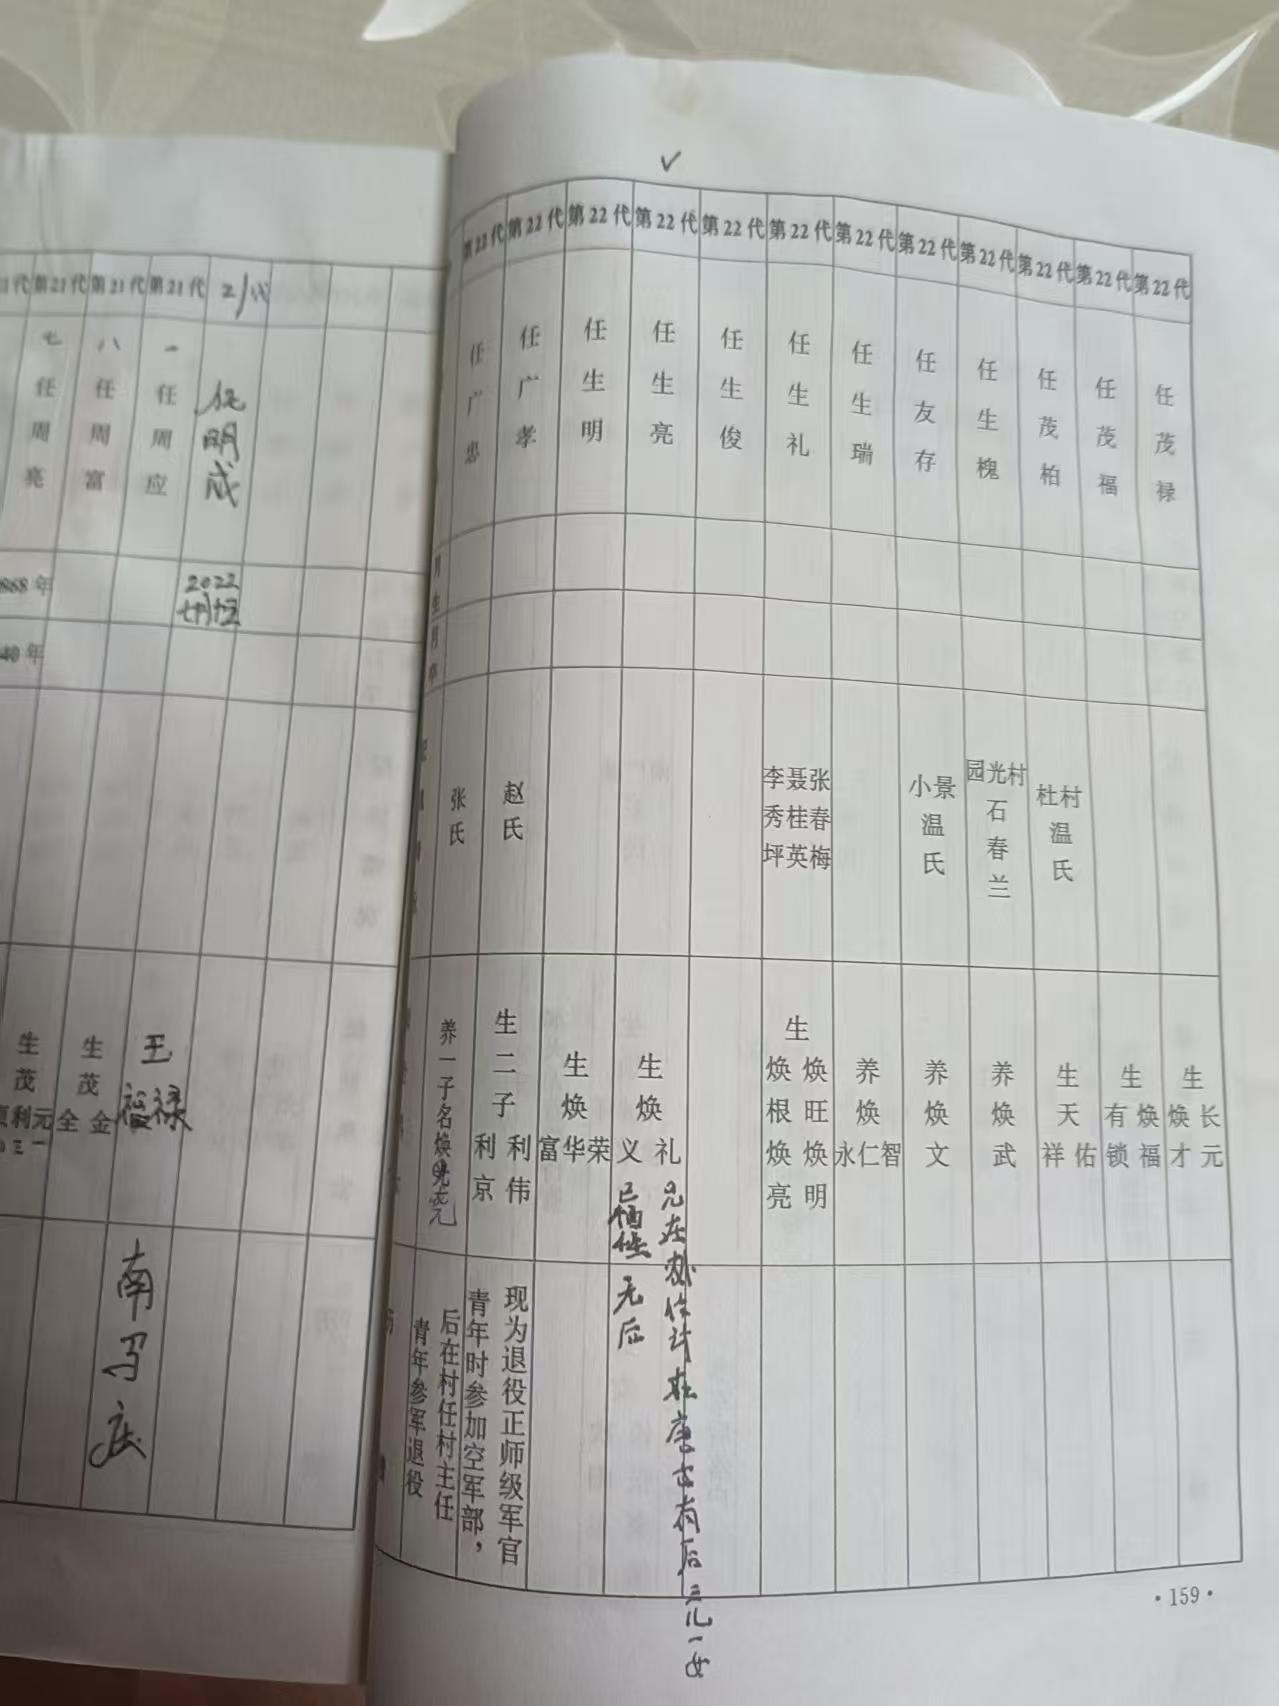 ✓
第21代 第21代 第21代 21代
七 八 一
任周亮
任周富
任周应
任明成
868年
2022
40年
生茂利元
生茂全金
王福禄
南马庄
第22代 第22代 第22代 第22代 第22代 第22代 第22代 第22代 第22代 第22代 第22代 第22代
任广忠
任广孝
任生明
任生亮
任生俊
任生礼
任生瑞
任友存
任生槐
任茂柏
任茂福
任茂禄
月生
月卒
张氏
赵氏
李秀坪
聂桂英
张春梅
小景温氏
园光村石春兰
杜村温氏
养一子名焕
生二子利京 利伟
生焕富华荣
生焕义 礼
生焕根 焕旺 焕亮 焕明
养焕永仁智
养焕文
养焕武
生天祥佑
生有锁 焕福
生焕才 长元
青年参军退役
后在村任村主任
青年时参加空军部，
现为退役正师级军官
无后
有后三儿一女
·159·